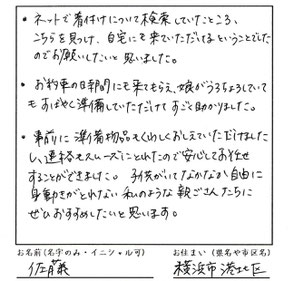 ・ネットで着付けについて検索していたところ、
こちらを見つけ、自宅にも来ていただけるということでした
のでお願いしたいと思いました。
・お約束の日時間にも来てもらえ、娘がうろちょろしていて
もすばやく準備していただけてすごく助かりました。
・事前に準備物品もくわしくおしえていただけました
し、連絡もスムーズにとれたので安心してお任せ
することができました。子供がいてなかなか自由に
身動きがとれない私のような親ごさんたちに
ぜひおすすめしたいと思います。
お名前(名字のみ・イニシャル可) お住まい(県名や市区名)
佐藤 横浜市港北区